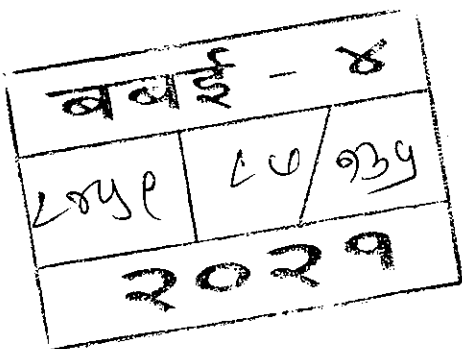 बबई - ४
८४५९ ८७/१३५
२०२१